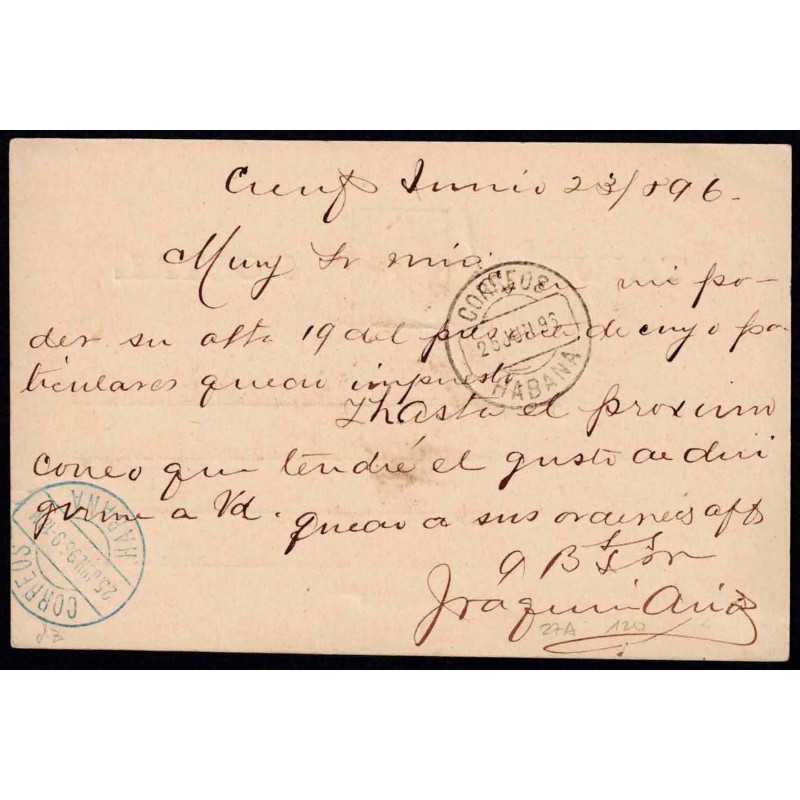 Cienf Junio 23/896.
Muy Sr mio:
en mi po-
der su atta 19 del pte de cuyo pa
ticulares quedo impuesto
Y hasta el proximo
correo que tendré el gusto de diri
girme a Vd. quedo a sus ordenes aftt
Q B S M
Joaquin Arias
CORREOS
25 JUN 96
HABANA
CORREOS
25 JUN 96
HABANA
27A 120